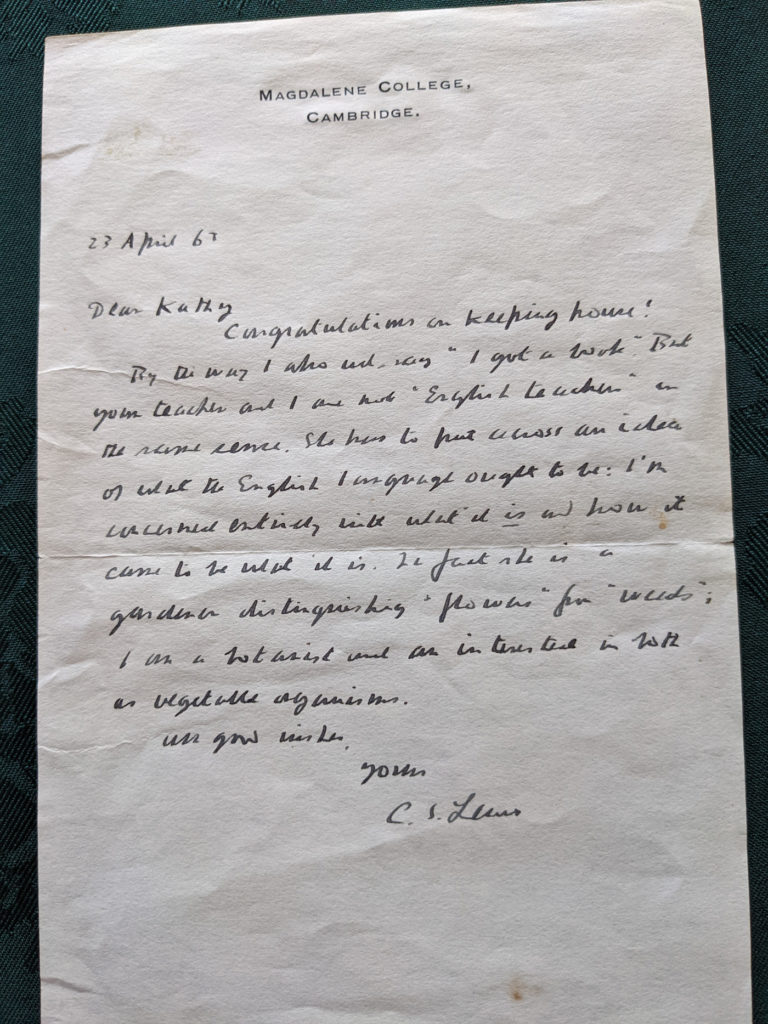 MAGDALENE COLLEGE,
CAMBRIDGE.
23 April 63
Dear Kathy
Congratulations on keeping house!
By the way I also wd. say "I got a book". But
your teacher and I are not "English teachers" in
the same sense. She has to put across an idea
of what the English language ought to be: I'm
concerned entirely with what it is and how it
came to be what it is. In fact she is a
gardener distinguishing "flowers" from "weeds";
I am a botanist and am interested in both
as vegetable organisms.
All good wishes,
yours
C. S. Lewis